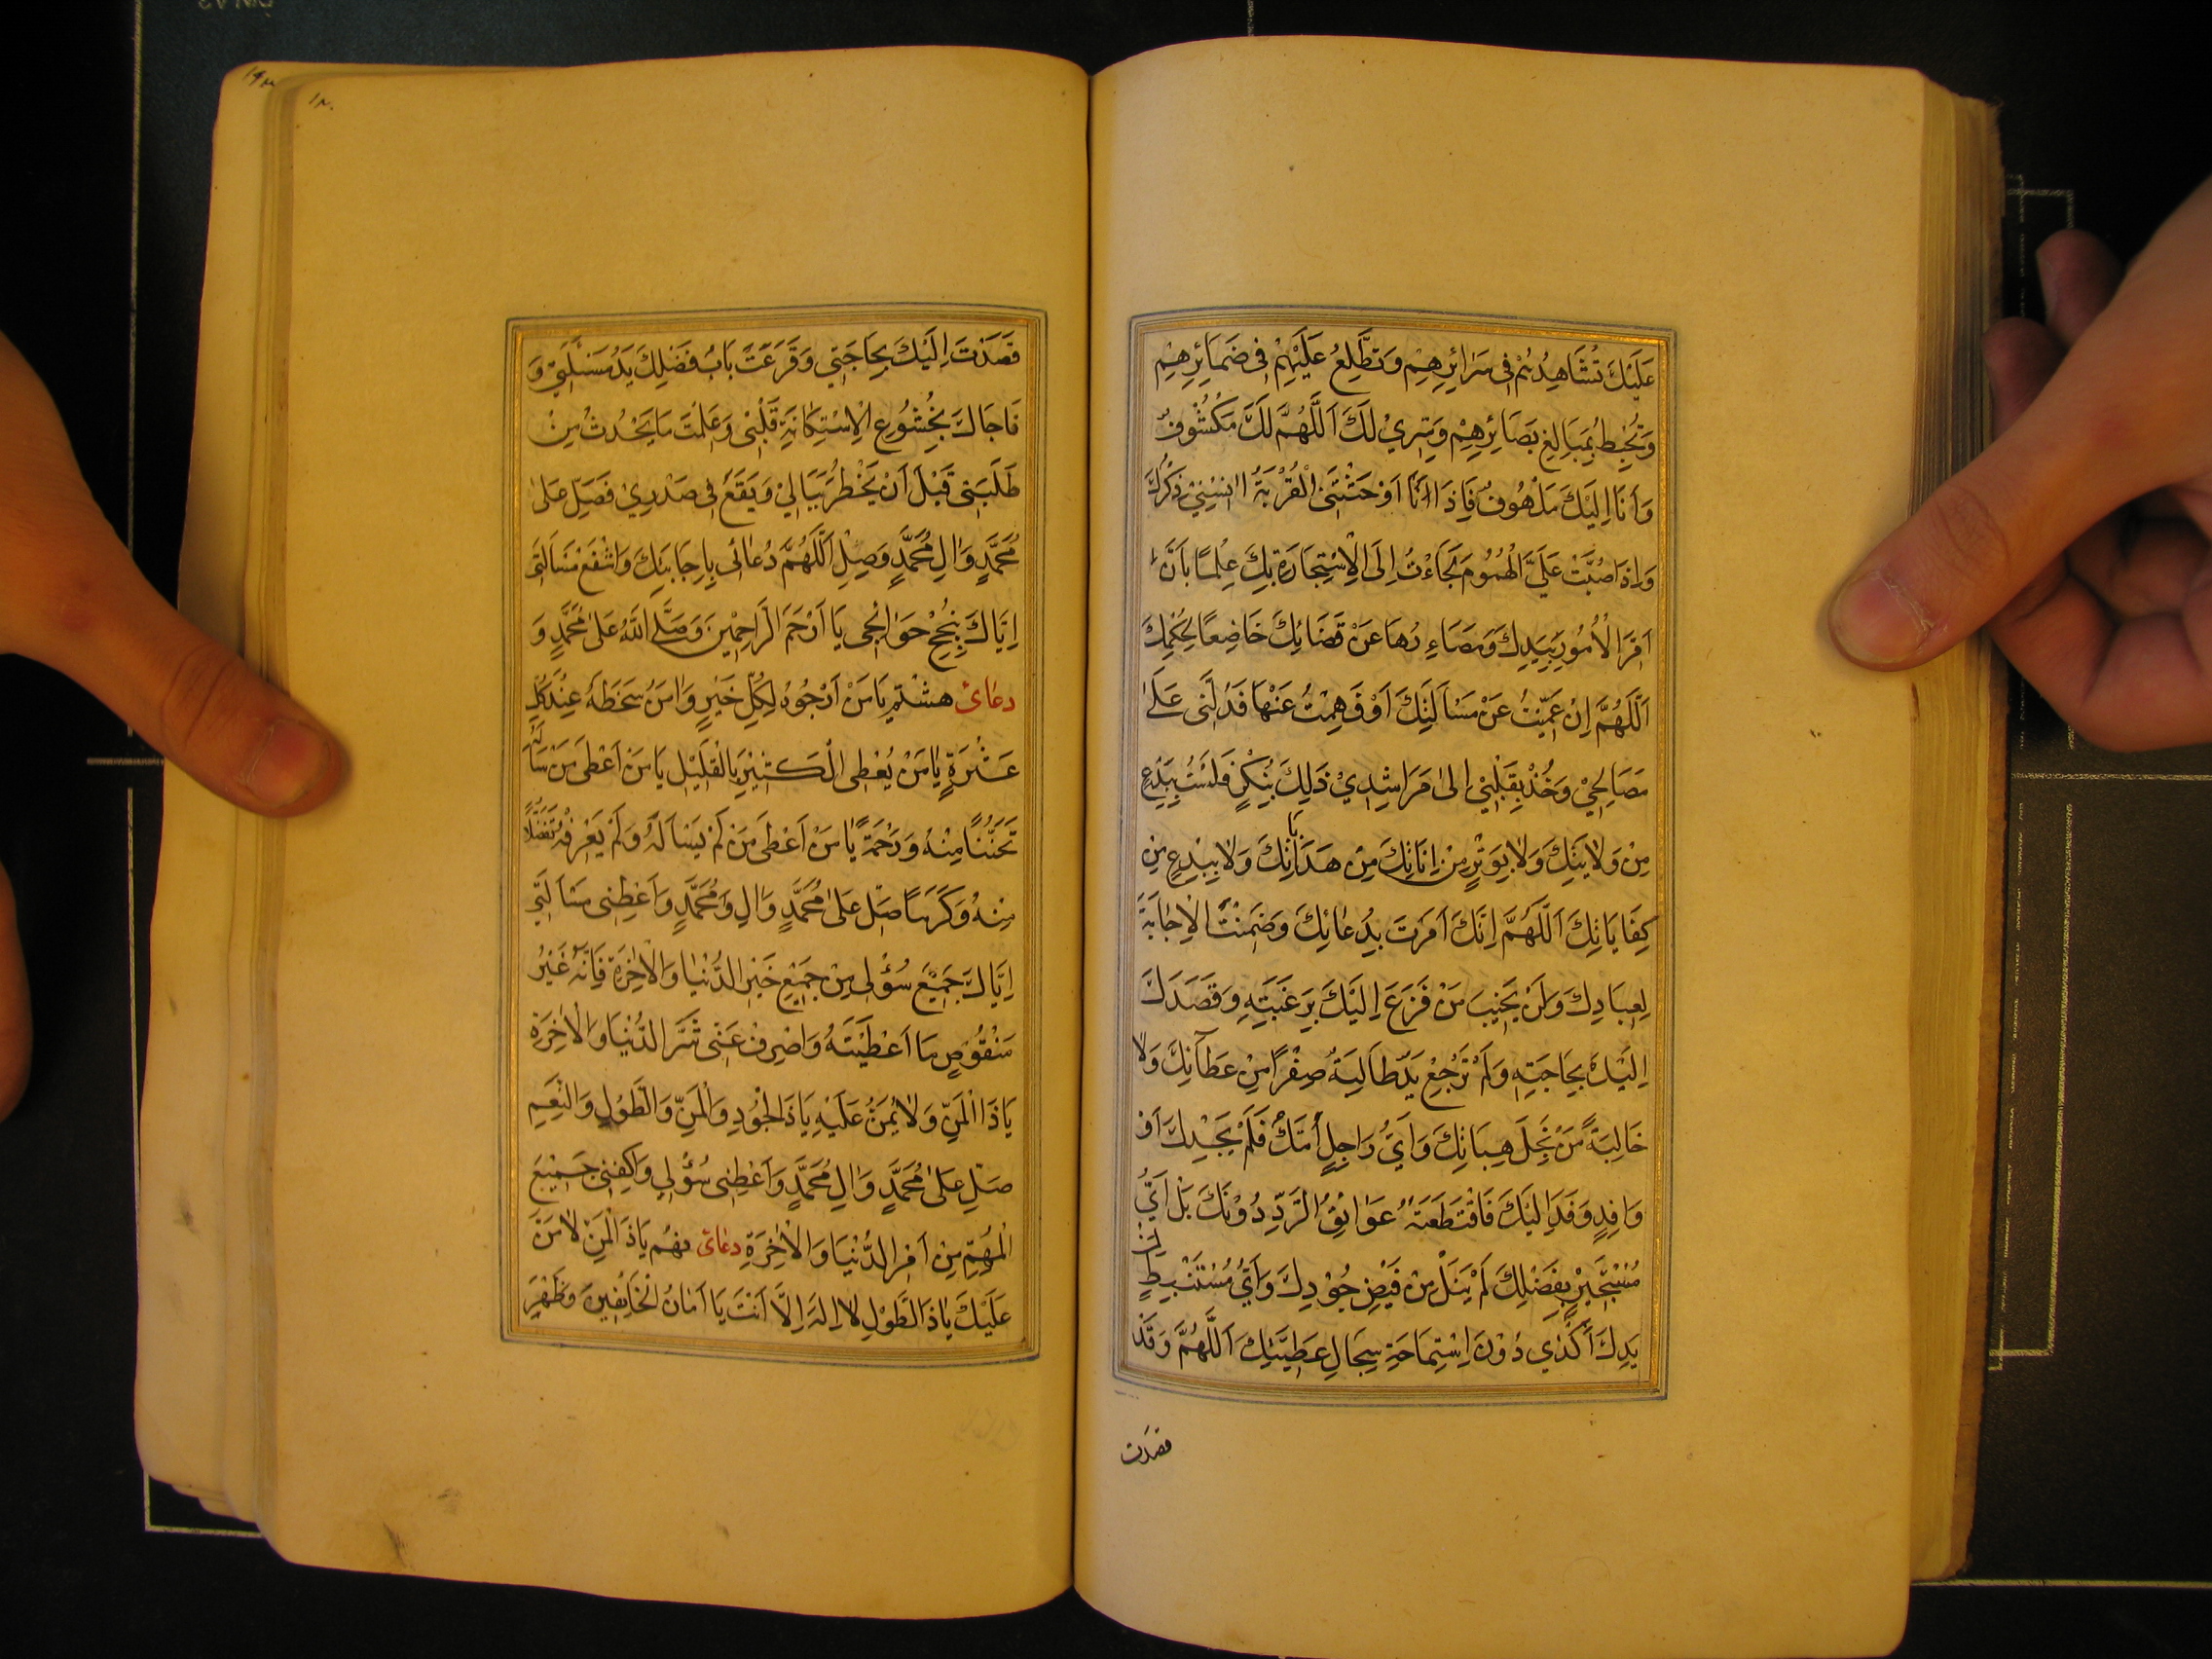 عَلَيْكَ تُشَاهِدُهُمْ فِى سَرَائِرِهِمْ وَتَطَّلِعُ عَلَيْهِمْ فِى ضَمَائِرِهِمْ
وَتُحِيطُ بِمَبَالِغِ بَصَائِرِهِمْ وَسِرِيْ لَكَ اَللَّهُمَّ لَكَ مَكْشُوفٌ
وَاَنَا اِلَيْكَ مَلْهُوفٌ فَاِذَا اَوْحَشَتْنَى الْغُرْبَةُ اٰنَسَنِيْ ذِكْرُكَ
وَاِذَا صُبَّتْ عَلَيَّ الْهُمُومُ لَجَاءْتُ اِلَى الْاِسْتِجَارَةِ بِكَ عِلْمًا بِاَنَّ
اَزِمَّةَ الْاُمُورِ بِيَدِكَ وَمَصَادِرُهَا عَنْ قَضَائِكَ خَاضِعًا لِحُكْمِكَ
اَللَّهُمَّ اِنْ عَمِيْتُ عَنْ مَسْاَلَتِكَ اَوْ فَهِهْتُ عَنْهَا فَدُلَّنِى عَلَىٰ
مَصَالِحِيْ وَخُذْ بِقَلْبِيْ اِلىٰ مَرَاشِدِيْ ذَلِكَ بِنُكْرٍ فَلَسْتُ بِبِدْعٍ
مِنْ وَلٰايَتِكَ وَلٰا بِوَتْرٍ مِنْ اِنَاتِكَ مِنْ هَدَايَاتِكَ وَلٰا بِبِدْعٍ مِن
كِفَايَاتِكَ اَللَّهُمَّ اِنَّكَ اَمَرْتَ بِدُعٰائِكَ وَضَمِنْتَ الْاِجٰابَةَ
لِعِبَادِكَ وَلَنْ يَخِيبَ مَنْ فَزَعَ اِلَيْكَ بِرَغْبَتِهِ وَقَصَدَكَ
اِلَيْكَ بِحَاجَتِهِ وَلَمْ تَرْجِعْ يَدٌ طَالِبَةٌ صِفْرًا مِنْ عَطَآئِكَ وَلٰا
خَائِبَةً مَنْ نِحَلِ هِبَاتِكَ وَاَيُّ رَاحِلٍ اَمَّكَ فَلَمْ يَجِدْكَ اَوْ
وَافِدٍ وَفَدَ اِلَيْكَ فَاقْتَطَعَتْهُ عَوَائِقُ الرَّدِّ دُوْنَكَ بَلْ اَيُّ
مُسْتَجِيْرٍ بِفَضْلِكَ لَمْ يَنَلْ مِنْ فَيْضِ جُوْدِكَ وَاَيُّ مُسْتَنْبِطٍ
يَدِكَ اَكْدٰي دُوْنَ اِسْتِمَاحَةِ سِجَالِ عَطِيَّتِكَ اَللَّهُمَّ وَقَدْ
قصدت
١٢٠
قَصَدْتُ اِلَيْكَ بِحَاجَتِي وَقَرَعَتْ بَابَ فَضْلِكَ يَدُ مَسْئَلَتِيْ وَ
نَاجَاكَ بِخُشُوعِ الْاِسْتِكَانَةِ قَلْبِى وَعَلِمْتَ مَا يَحْدُثُ مِنْ
طَلَبَتِى قَبْلَ اَنْ يَخْطُرَ بِبَالِيْ وَيَقَعَ فِى صَدْرِيْ فَصَلِّ عَلىٰ
مُحَمَّدٍ وَاٰلِ مُحَمَّدٍ وَصِلِ اَللّٰهُمَّ دُعٰائى بِاِجَابَتِكَ وَاشْفَعْ مَسْاَلَتِى
اِيَّاكَ بِنُجْحِ حَوٰائِجى يَا اَرْحَمَ الرَّاحِمِيْنَ وَصَلَّى اللّٰهُ عَلىٰ مُحَمَّدٍ وَ
دعائ هشتم يَا مَنْ اَرْجُوهُ لِكُلِّ خَيْرٍ وَاٰمَنُ سَخَطَهُ عِنْدَ كُلِّ
عَثْرَةٍ يَا مَنْ يُعْطِى الْكَثِيْرَ بِالْقَلِيْلِ يَا مَنْ اَعْطَى مَنْ سَاَلَهُ
تَحَنُّنًا مِنْهُ وَرَحْمَةً يٰا مَنْ اَعْطَى مَنْ لَمْ يَسْاَلْهُ وَلَمْ يَعْرِفْهُ تَفَضُّلًا
مِنْهُ وَكَرَمًا صَلِّ عَلىٰ مُحَمَّدٍ وَاٰلِ وَمُحَمَّدٍ وَاَعْطِنِى مَسْاَلَتِى
اِيَّاكَ جَمِيْعَ سُؤْلِى مِنْ جَمِيْعِ خَيْرِ الدُّنْيَا وَالْاٰخِرَةِ فَاِنَّهُ غَيْرُ
مَنْقُوْصٍ مَا اَعْطَيْتَهُ وَاصْرِفْ عَنّى شَرَّ الدُّنْيَا وَالْاٰخِرَةِ
يَا ذَا الْمَنِّ وَلٰا يُمَنُّ عَلَيْهِ يَا ذَ الْجُوْدِ وَالْمَنِّ وَالطَّوْلِ وَالنِّعَمِ
صَلِّ عَلىٰ مُحَمَّدٍ وَاٰلِ مُحَمَّدٍ وَاَعْطِنِى سُؤْلِي وَاكْفِنِى جَمِيْعَ
الْمُهِمِّ مِنْ اَمْرِ الدُّنْيَا وَالْاٰخِرَةِ دعائ نهم يَا ذَ الْمَنِّ لٰا مَنَّ
عَلَيْكَ يٰا ذَ الطَّوْلِ لٰا اِلٰهَ اِلَّا اَنْتَ يَا اَمٰانَ الْخَائِفِيْنَ وَظَهْرَ